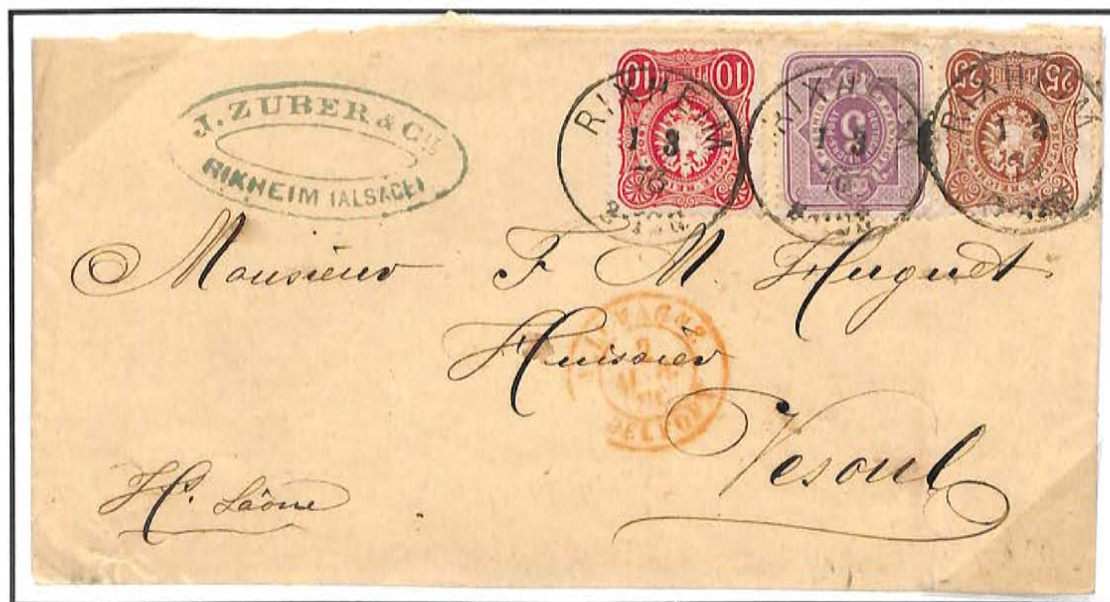 J. ZUBER & CIE
RIXHEIM (ALSACE)
10
5
25
RIXHEIM
1 3
76
RIXHEIM
1 3
76
RIXHEIM
1
Monsieur F. M. Huguet
Huissier
BELFORT
Vesoul
H. Saône